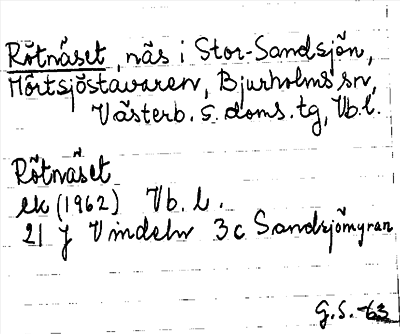 Rötnäset, näs i Stor-Sandsjön,
Mörtsjöstavaren, Bjurholms sn,
Västerb. s. doms. tg, Vb. l.
Rötnäset
ek (1962) Vb. l.
21 J Vindeln 3c Sandsjömyran
G.S. -63